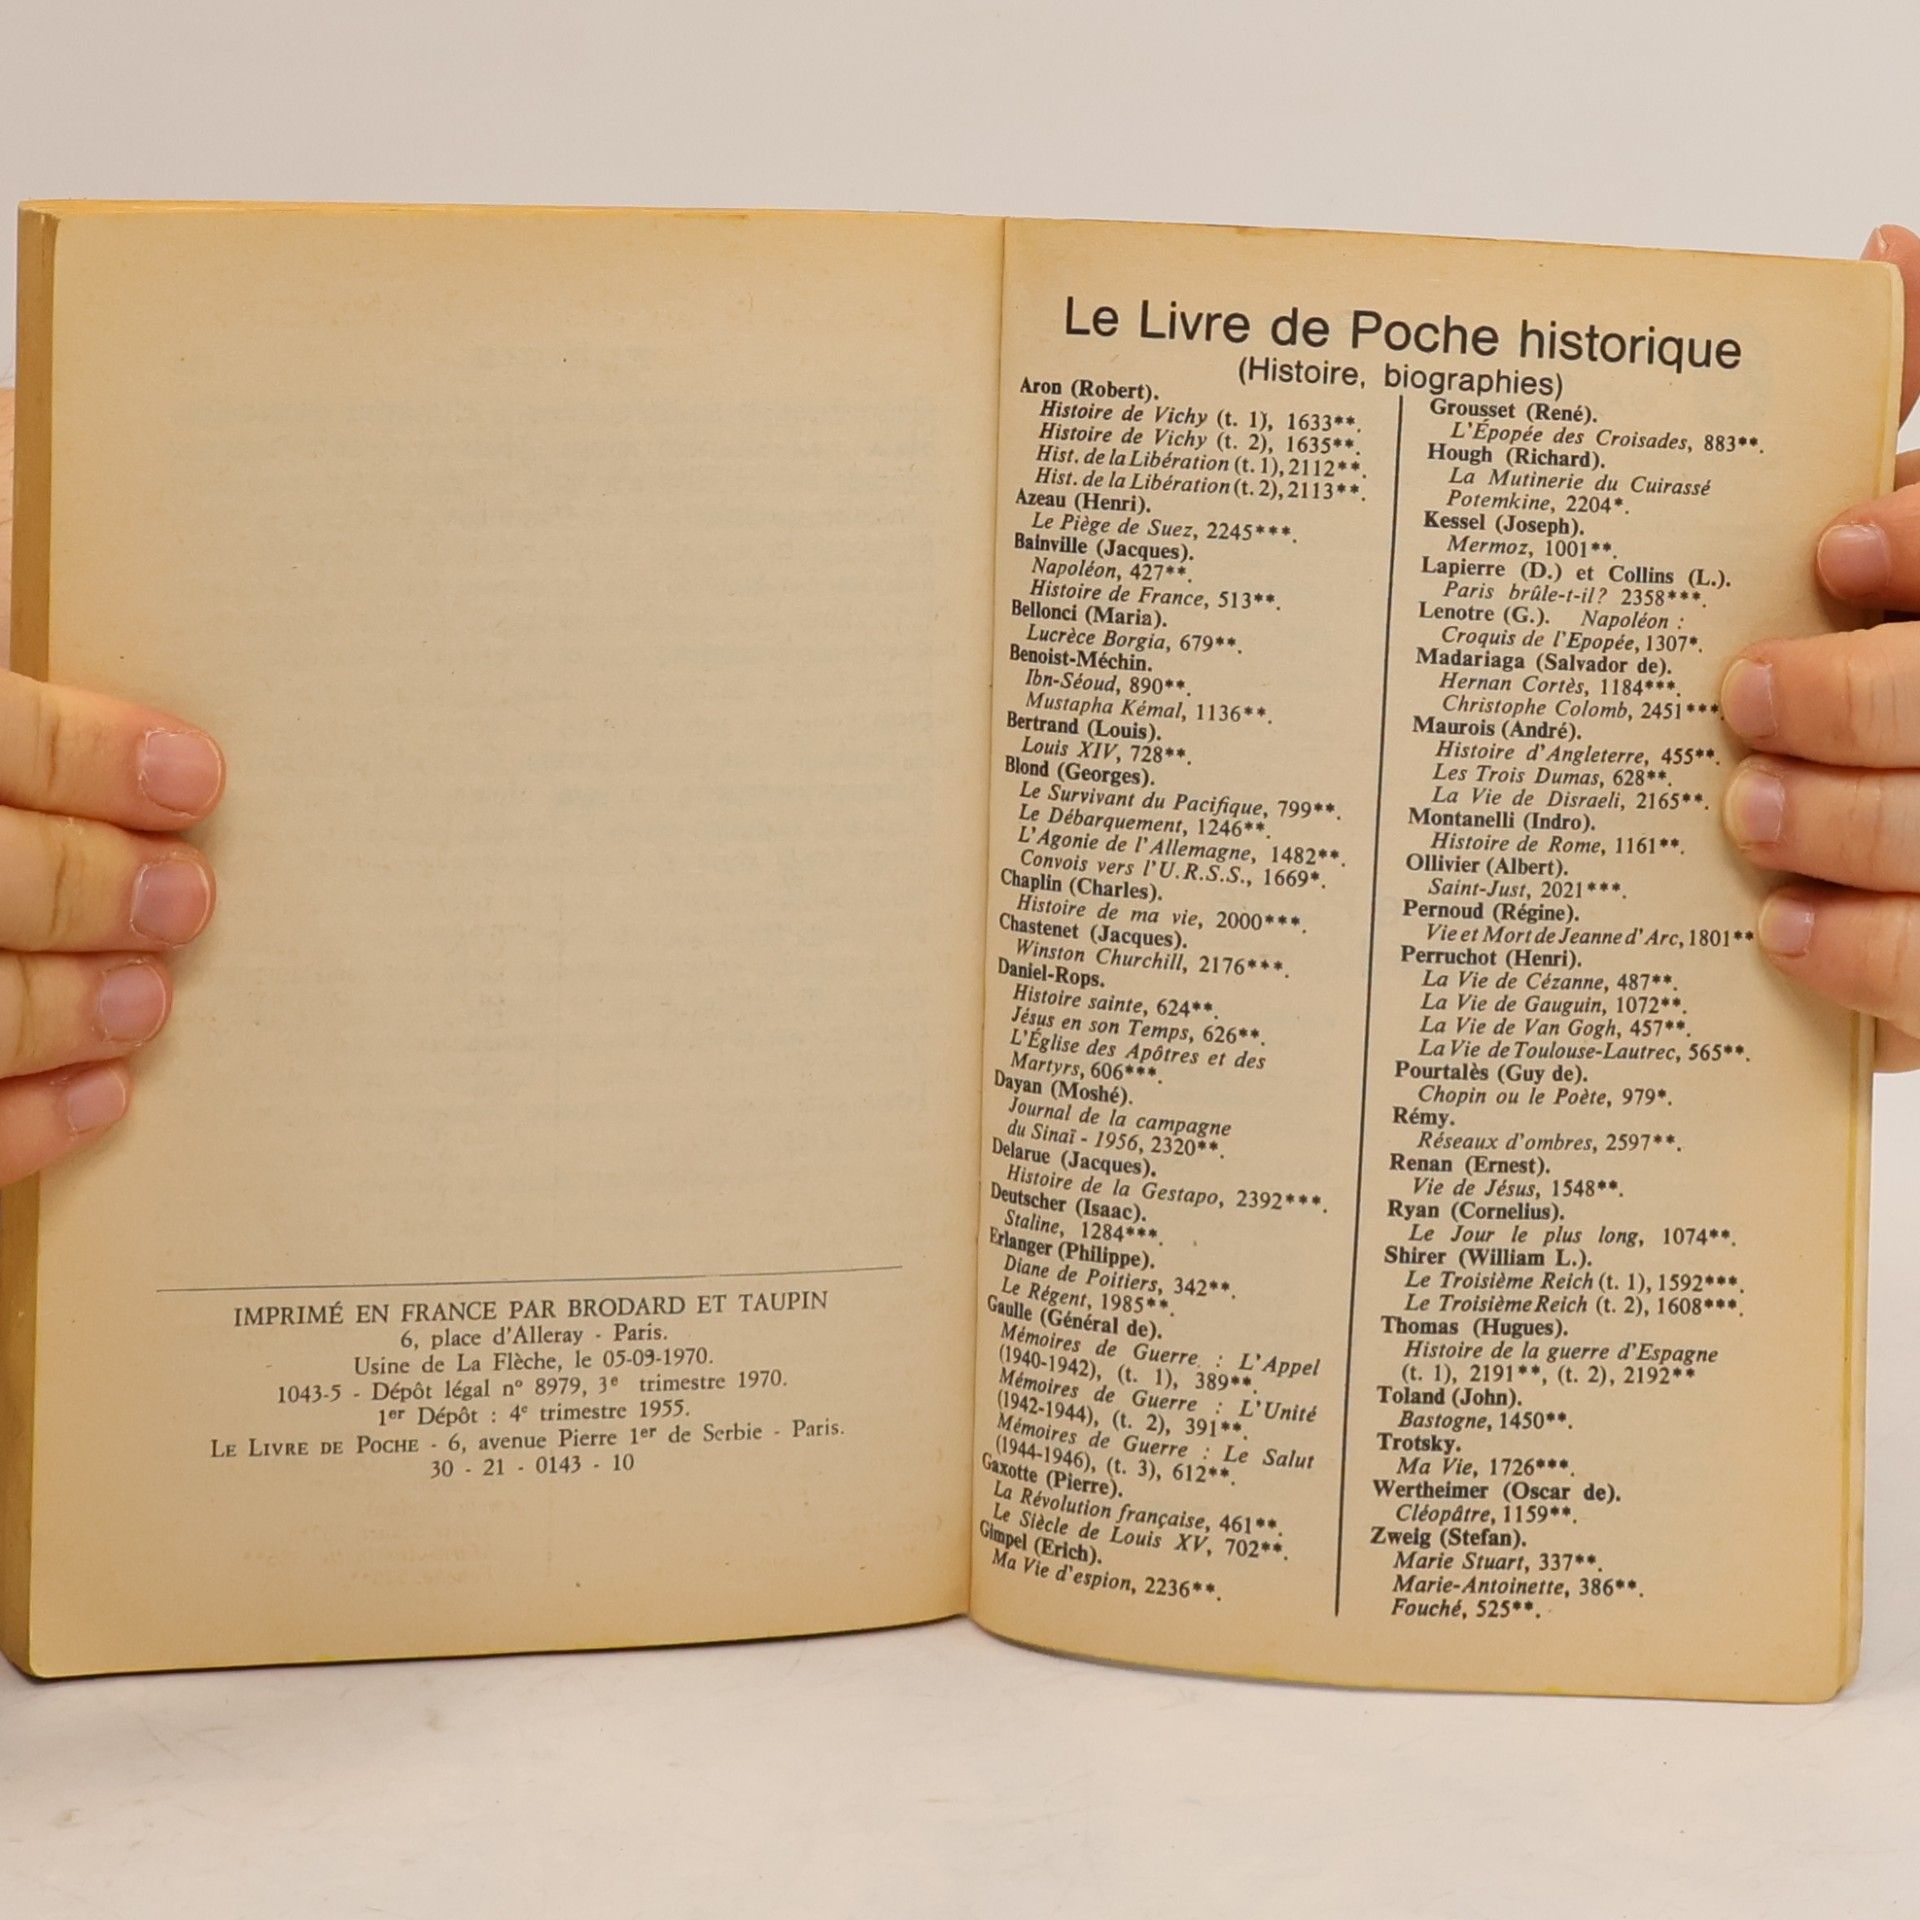 IMPRIMÉ EN FRANCE PAR BRODARD ET TAUPIN
6, place d'Alleray - Paris.
Usine de La Flèche, le 05-09-1970.
1043-5 - Dépôt légal nº 8979, 3e trimestre 1970.
1er Dépôt : 4e trimestre 1955.
LE LIVRE DE POCHE - 6, avenue Pierre 1er de Serbie - Paris.
30 - 21 - 0143 - 10
Le Livre de Poche historique
(Histoire, biographies)
Aron (Robert).
Histoire de Vichy (t. 1), 1633**.
Histoire de Vichy (t. 2), 1635**.
Hist. de la Libération (t. 1), 2112**.
Hist. de la Libération (t. 2), 2113**.
Azeau (Henri).
Le Piège de Suez, 2245***.
Bainville (Jacques).
Napoléon, 427**.
Histoire de France, 513**.
Bellonci (Maria).
Lucrèce Borgia, 679**.
Benoist-Méchin.
Ibn-Séoud, 890**.
Mustapha Kémal, 1136**.
Bertrand (Louis).
Louis XIV, 728**.
Blond (Georges).
Le Survivant du Pacifique, 799**.
Le Débarquement, 1246**.
L'Agonie de l'Allemagne, 1482**.
Convois vers l'U.R.S.S., 1669*.
Chaplin (Charles).
Histoire de ma vie, 2000***.
Chastenet (Jacques).
Winston Churchill, 2176***.
Daniel-Rops.
Histoire sainte, 624**.
Jésus en son Temps, 626**.
L'Église des Apôtres et des
Martyrs, 606***.
Dayan (Moshé).
Journal de la campagne
du Sinaï - 1956, 2320**.
Delarue (Jacques).
Histoire de la Gestapo, 2392***.
Deutscher (Isaac).
Staline, 1284***.
Erlanger (Philippe).
Diane de Poitiers, 342**.
Le Régent, 1985**.
Gaulle (Général de).
Mémoires de Guerre : L'Appel
(1940-1942), (t. 1), 389**.
Mémoires de Guerre : L'Unité
(1942-1944), (t. 2), 391**.
Mémoires de Guerre : Le Salut
(1944-1946), (t. 3), 612**.
Gaxotte (Pierre).
La Révolution française, 461**.
Le Siècle de Louis XV, 702**.
Gimpel (Erich).
Ma Vie d'espion, 2236**.
Grousset (René).
L'Épopée des Croisades, 883**.
Hough (Richard).
La Mutinerie du Cuirassé
Potemkine, 2204*.
Kessel (Joseph).
Mermoz, 1001**.
Lapierre (D.) et Collins (L.).
Paris brûle-t-il? 2358***.
Lenotre (G.). Napoléon :
Croquis de l'Epopée, 1307*.
Madariaga (Salvador de).
Hernan Cortès, 1184***.
Christophe Colomb, 2451***
Maurois (André).
Histoire d'Angleterre, 455**.
Les Trois Dumas, 628**.
La Vie de Disraeli, 2165**.
Montanelli (Indro).
Histoire de Rome, 1161**.
Ollivier (Albert).
Saint-Just, 2021***.
Pernoud (Régine).
Vie et Mort de Jeanne d'Arc, 1801**
Perruchot (Henri).
La Vie de Cézanne, 487**.
La Vie de Gauguin, 1072**.
La Vie de Van Gogh, 457**.
La Vie de Toulouse-Lautrec, 565**.
Pourtalès (Guy de).
Chopin ou le Poète, 979*.
Rémy.
Réseaux d'ombres, 2597**.
Renan (Ernest).
Vie de Jésus, 1548**.
Ryan (Cornelius).
Le Jour le plus long, 1074**.
Shirer (William L.).
Le Troisième Reich (t. 1), 1592***.
Le Troisième Reich (t. 2), 1608***.
Thomas (Hugues).
Histoire de la guerre d'Espagne
(t. 1), 2191**, (t. 2), 2192**
Toland (John).
Bastogne, 1450**.
Trotsky.
Ma Vie, 1726***.
Wertheimer (Oscar de).
Cléopâtre, 1159**.
Zweig (Stefan).
Marie Stuart, 337**.
Marie-Antoinette, 386**.
Fouché, 525**.